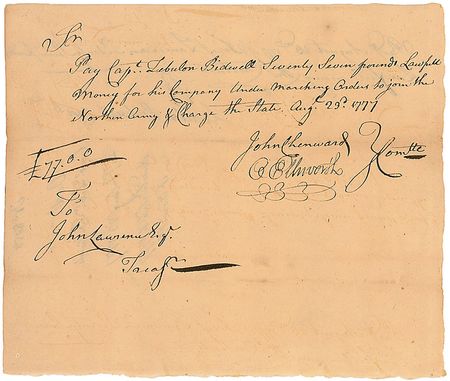 Sir
Pay Capt. Zebulon Bidwell Seventy Seven pounds Lawfull
Money for his Company Under Marching Orders to join the
Northern Army & Charge the State. Augt. 29th. 1777
John Chenward
O Ellsworth
Comtte
£77.0.0
To
John Lawrence Esqr.
Treasr